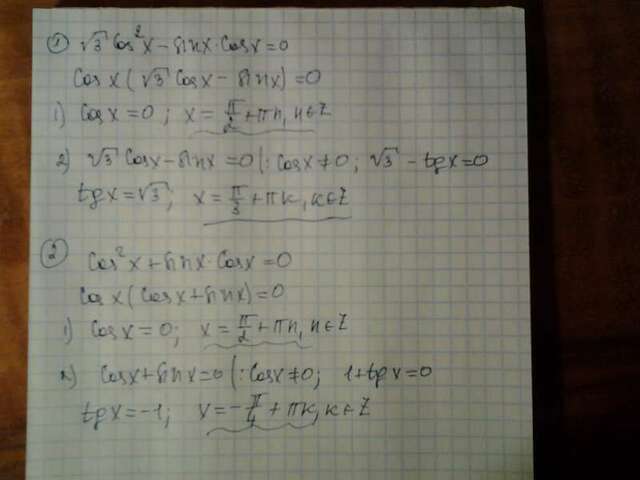 ① √3 cos²x − sinx·cosx = 0
cosx(√3 cosx − sinx) = 0
1) cosx = 0; x = π/2 + πn, n∈Z
2) √3 cosx − sinx = 0 |: cosx ≠ 0; √3 − tgx = 0
tgx = √3; x = π/3 + πk, k∈Z
② cos²x + sinx·cosx = 0
cosx(cosx + sinx) = 0
1) cosx = 0; x = π/2 + πn, n∈Z
2) cosx + sinx = 0 |: cosx ≠ 0; 1 + tgx = 0
tgx = −1; x = −π/4 + πk, k∈Z